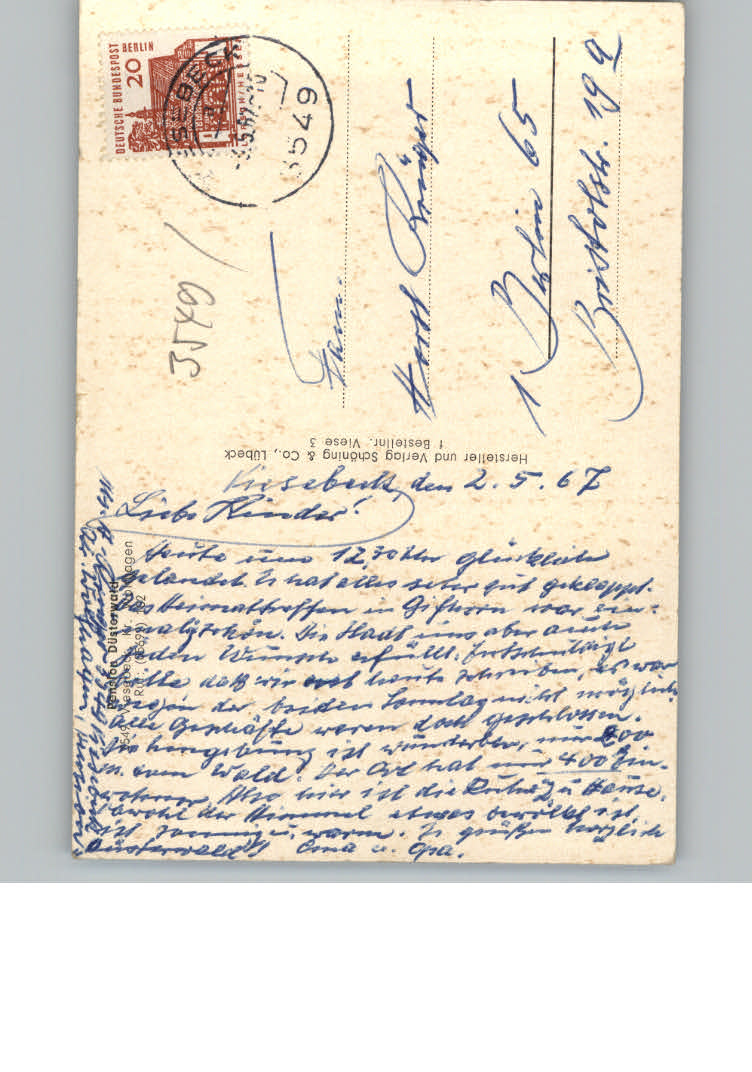 DEUTSCHE BUNDESPOST
BERLIN
20
3549
3549
Fam.
Horst Krüger
1 Berlin 65
Bristolstr. 19 a
Hersteller und Verlag Schöning & Co., Lübeck
1 Bestellnr. Viese 3
Viesebeck den 2. 5. 67
Liebe Kinder!
Heute um 12 30 Uhr glücklich
gelandet. Es hat alles sehr gut geklappt.
Das Heimattreffen in Gifhorn war ein-
malig schön. Die Stadt uns aber auch
jeden Wunsch erfüllt. Entschuldigt
bitte daß wir erst heute schreiben, es war
wegen der beiden Sonntag nicht möglich
alle Geschäfte waren doch geschlossen.
Die Umgebung ist wunderbar, nur 200
m. vom Wald. Der Ort hat nur 400 Ein-
wohner. Also hier ist die Ruhe zu Hause.
Obwohl der Himmel etwas bewölkt ist
ist sonnig u. warm. Es grüßen herzlich
Oma u. Opa.
Pension Düsterwald
3549 Viesebeck Kr. Wolfhagen
"Düsterwald"